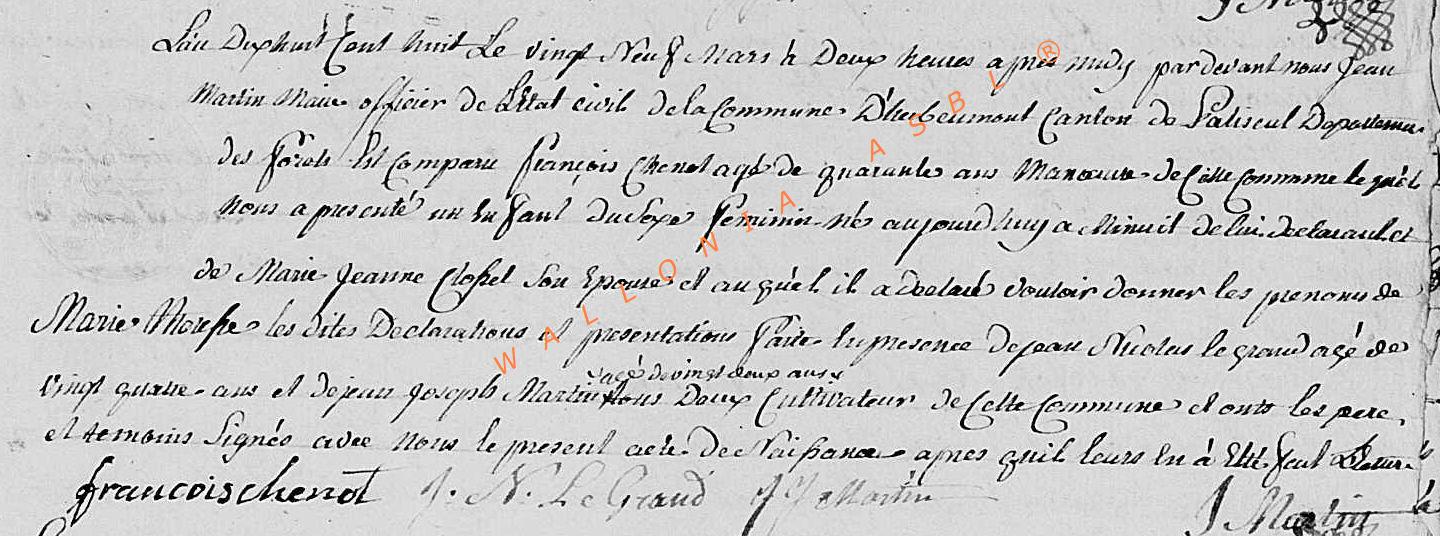 L'an Dixhuit Cent huit Le vingt Neuf Mars à Deux heures apres midy pardevant nous Jean
Martin Maire officier de L'Etat civil de la Commune D'herbeumont Canton de Paliseul Departement
des Forêts Est Comparu françois Chenot agé de quarante ans Manoeuvre de Cette Commune lequel
Nous a presenté un Enfant du Sexe feminin né aujourd'huy a Minuit de lui declarant et
de Marie Jeanne Closset Son Epouse et auquel il a declaré vouloir donner les prenoms de
Marie Therese les dites Declarations et presentations faite En presence de jean Nicolas le grand agé de
agé de vingt deux ans
vingt quatre ans et de jean joseph Martin tous Deux Cultivateur de Cette Commune et onts les pere
et temoins Signés avec Nous le present acte de Naissance apres quil leurs En à Eté fait Lecture
francois chenot J. N. Le Grand J J Martin
J Martin
WALLONIA ASBL ®